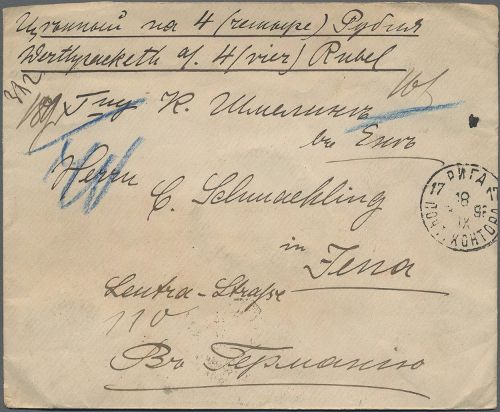 Цѣнный на 4 (четыре) Рубля
Werthpacketh a/. 4 (vier) Rubel
312
Гну К. Шмелингъ
въ Енѣ
Herrn
C. Schmaehling
in
Jena
Lentra-Straße
110
Въ Германію
РИГА
17
18
IX
ПОЧТ. КОНТОРА